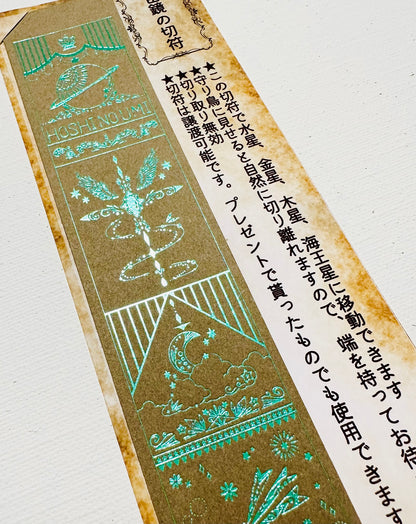 鏡の切符
★この切符で水星、金星、木星、海王星に移動できます
★守り鳥に見せると自然に切り離れますので、端を持ってお待
★切り取り無効
★切符は譲渡可能です。プレゼントで貰ったものでも使用できます
HOSHINOUMI